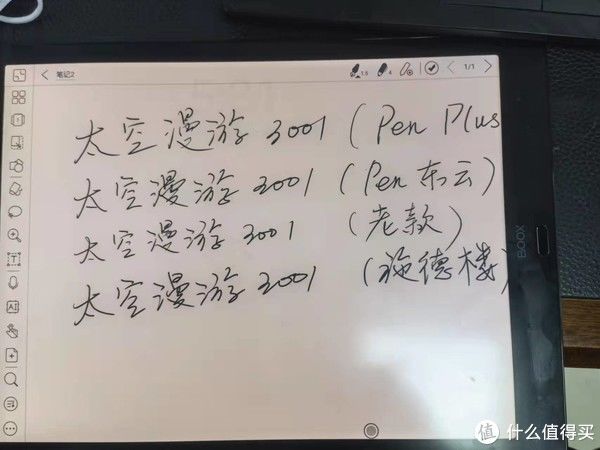 笔记2
1.5
4
1/1
太空漫游 3001 (Pen Plus
太空漫游 3001 (Pen 东云)
太空漫游 3001 (老款)
太空漫游 3001 (施德楼)
BOOX
值 什么值得买